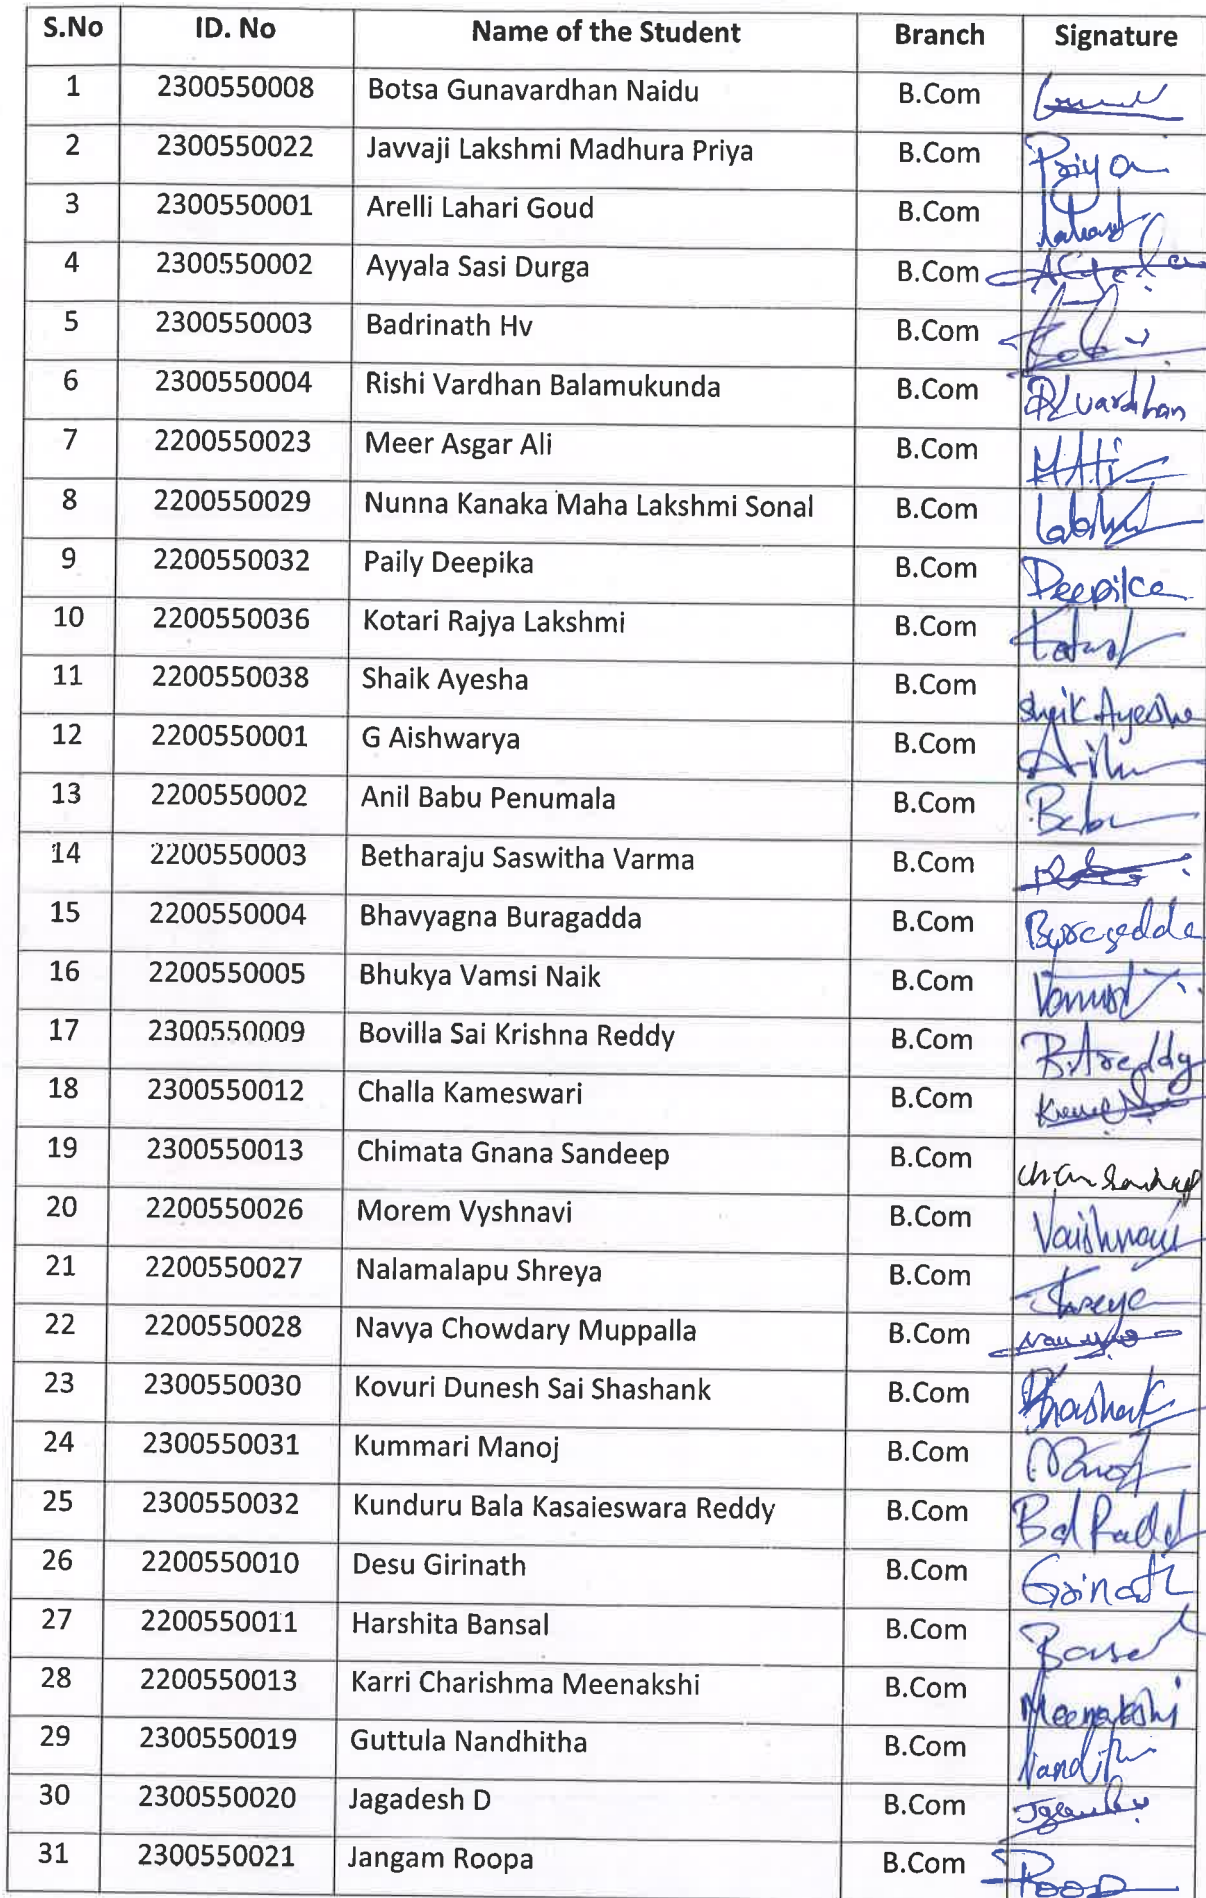 S.No ID. No Name of the Student Branch Signature
1 2300550008 Botsa Gunavardhan Naidu B.Com
2 2300550022 Javvaji Lakshmi Madhura Priya B.Com Priya
3 2300550001 Arelli Lahari Goud B.Com
4 2300550002 Ayyala Sasi Durga B.Com
5 2300550003 Badrinath Hv B.Com
6 2300550004 Rishi Vardhan Balamukunda B.Com vardhan
7 2200550023 Meer Asgar Ali B.Com
8 2200550029 Nunna Kanaka Maha Lakshmi Sonal B.Com
9 2200550032 Paily Deepika B.Com Deepika
10 2200550036 Kotari Rajya Lakshmi B.Com
11 2200550038 Shaik Ayesha B.Com Shaik Ayesha
12 2200550001 G Aishwarya B.Com
13 2200550002 Anil Babu Penumala B.Com Babu
14 2200550003 Betharaju Saswitha Varma B.Com
15 2200550004 Bhavyagna Buragadda B.Com Buragadda
16 2200550005 Bhukya Vamsi Naik B.Com
17 2300550009 Bovilla Sai Krishna Reddy B.Com
18 2300550012 Challa Kameswari B.Com
19 2300550013 Chimata Gnana Sandeep B.Com
20 2200550026 Morem Vyshnavi B.Com Vaishnavi
21 2200550027 Nalamalapu Shreya B.Com Shreya
22 2200550028 Navya Chowdary Muppalla B.Com
23 2300550030 Kovuri Dunesh Sai Shashank B.Com Shashank
24 2300550031 Kummari Manoj B.Com Manoj
25 2300550032 Kunduru Bala Kasaieswara Reddy B.Com
26 2200550010 Desu Girinath B.Com Girinath
27 2200550011 Harshita Bansal B.Com
28 2200550013 Karri Charishma Meenakshi B.Com Meenakshi
29 2300550019 Guttula Nandhitha B.Com
30 2300550020 Jagadesh D B.Com
31 2300550021 Jangam Roopa B.Com